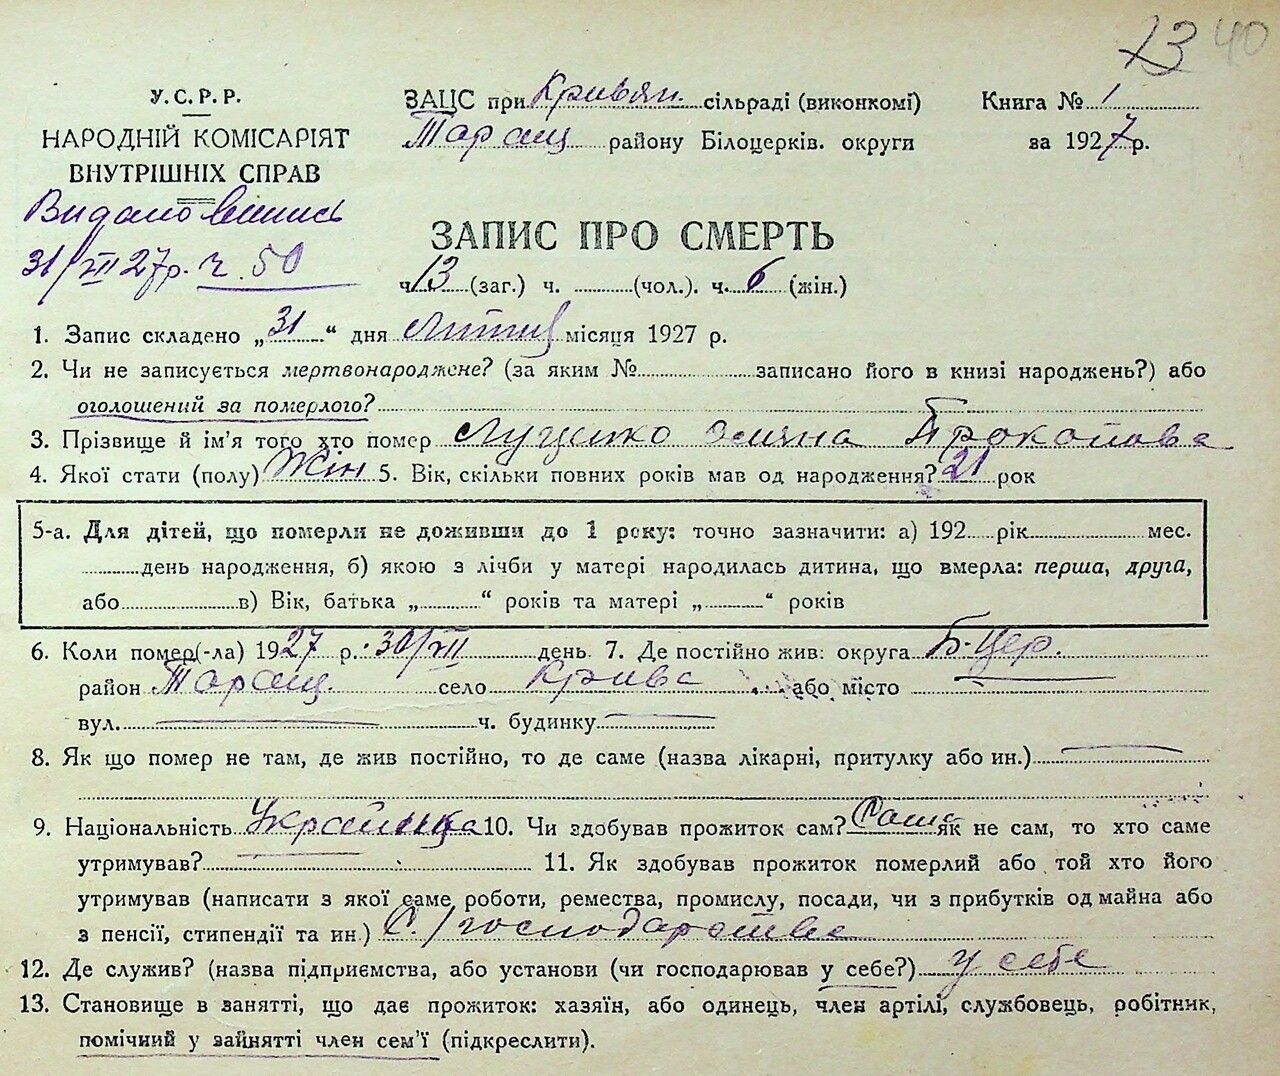 73 40
У.С.Р.Р.
НАРОДНІЙ КОМІСАРІЯТ
ВНУТРІШНІХ СПРАВ
Видано виписъ
31/VII 27р. ч. 50
ЗАЦС при Кривян. сільраді (виконкомі)
Таращ району Білоцерків. округи
Книга № 1
за 1927 р.
ЗАПИС ПРО СМЕРТЬ
ч. 13 (заг.) ч. (чол.). ч. 6 (жін.)
1. Запис складено „31“ дня місяця 1927 р.
2. Чи не записується мертвонароджене? (за яким № записано його в книзі народжень?) або
оголошений за померлого?
3. Прізвище й ім'я того хто помер Луценко Прокопова
4. Якої стати (полу) Жін 5. Вік, скільки повних років мав од народження? 21 рок
5-а. Для дітей, що померли не доживши до 1 року: точно зазначити: а) 192 рік мес.
день народження, б) якою з лічби у матері народилась дитина, що вмерла: перша, друга,
або в) Вік, батька „ “ років та матері „ “ років
6. Коли помер(-ла) 1927 р. 30/VII день 7. Де постійно жив: округа Б-Цер.
район Таращ. село Крива або місто
вул. ч. будинку
8. Як що помер не там, де жив постійно, то де саме (назва лікарні, притулку або ин.)
9. Національність Українка 10. Чи здобував прожиток сам? Сама як не сам, то хто саме
утримував? 11. Як здобував прожиток померлий або той хто його
утримував (написати з якої саме роботи, ремества, промислу, посади, чи з прибутків од майна або
з пенсії, стипендії та ин.) С./господарства
12. Де служив? (назва підприємства, або установи (чи господарював у себе?) у себе
13. Становище в занятті, що дає прожиток: хазяїн, або одинець, член артілі, службовець, робітник,
помічний у зайнятті член сем'ї (підкреслити).